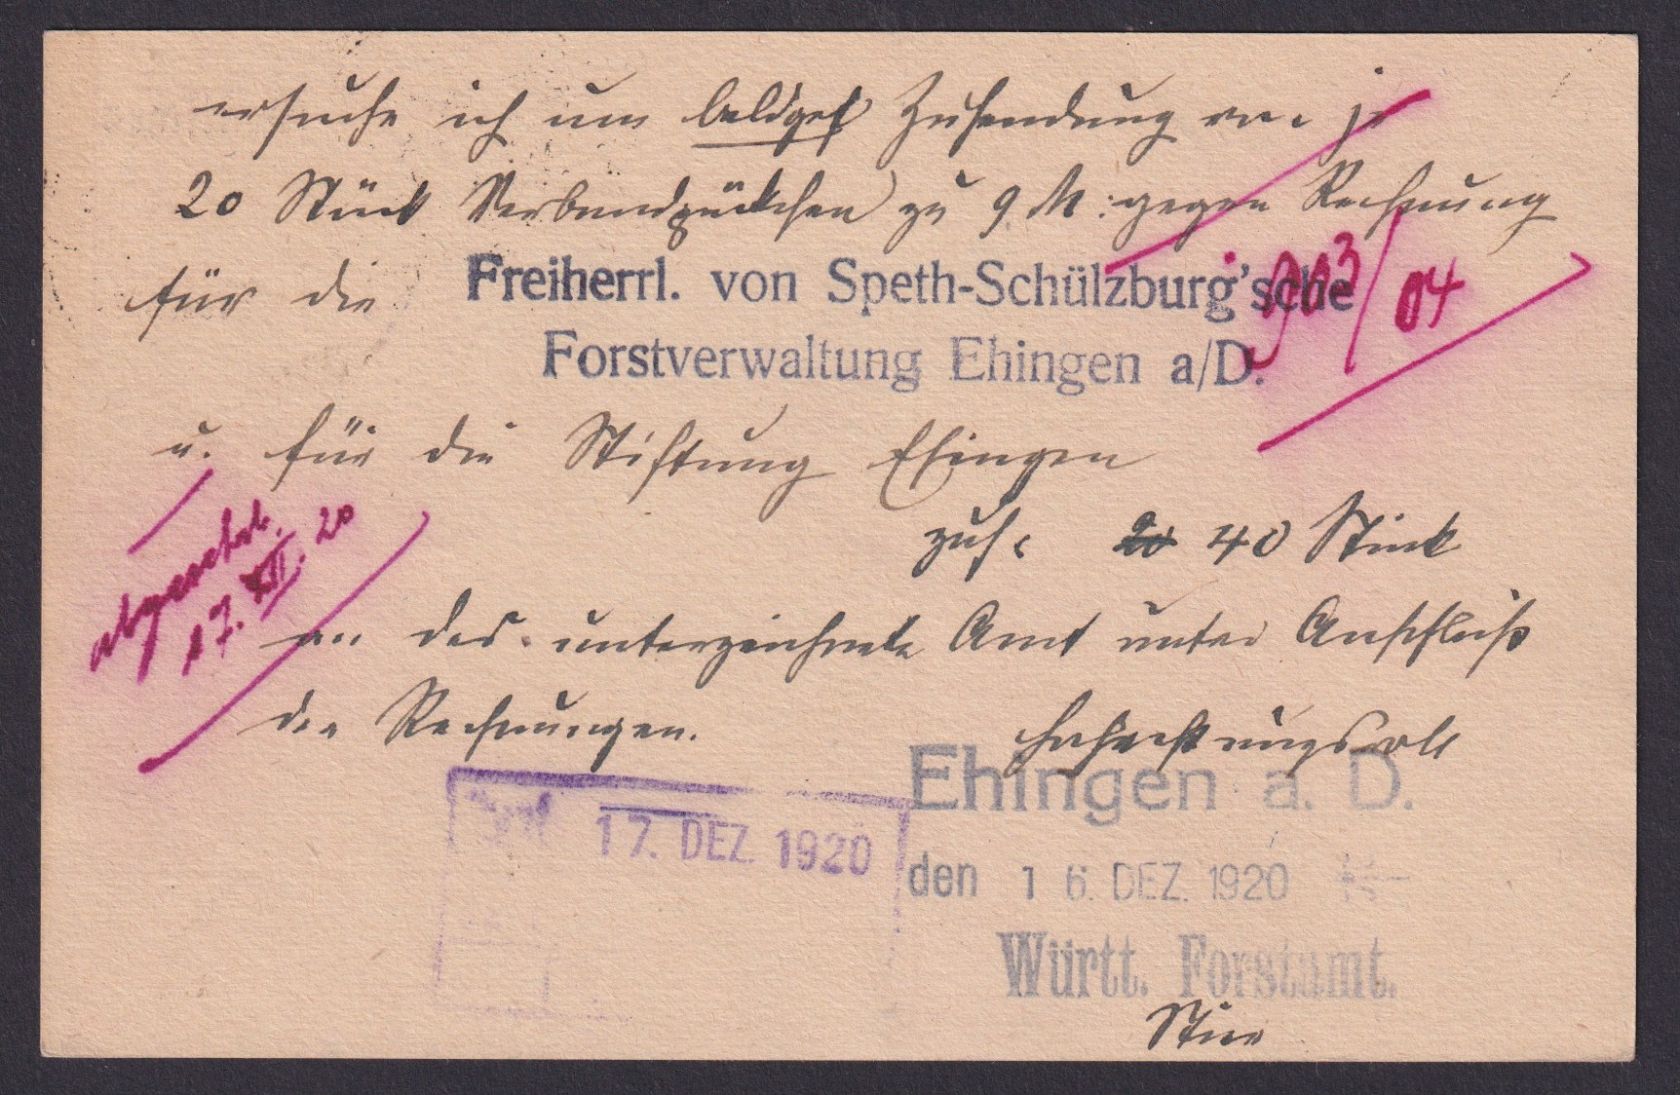 ersuche ich um baldgef Zusendung von je
20 Stück Verbandpäckchen zu 9 M. gegen Rechnung
für die Freiherrl. von Speth-Schülzburg'sche
Forstverwaltung Ehingen a/D.
903/04
u. für die Stiftung Ehingen
zus. 20 40 Stück
abgeschr.
17. XII. 20
an das unterzeichnete Amt unter Anschluß
der Rechnungen.
Hochachtungsvoll
Ehingen a. D.
17. DEZ. 1920
den 16. DEZ. 1920
Württ. Forstamt.